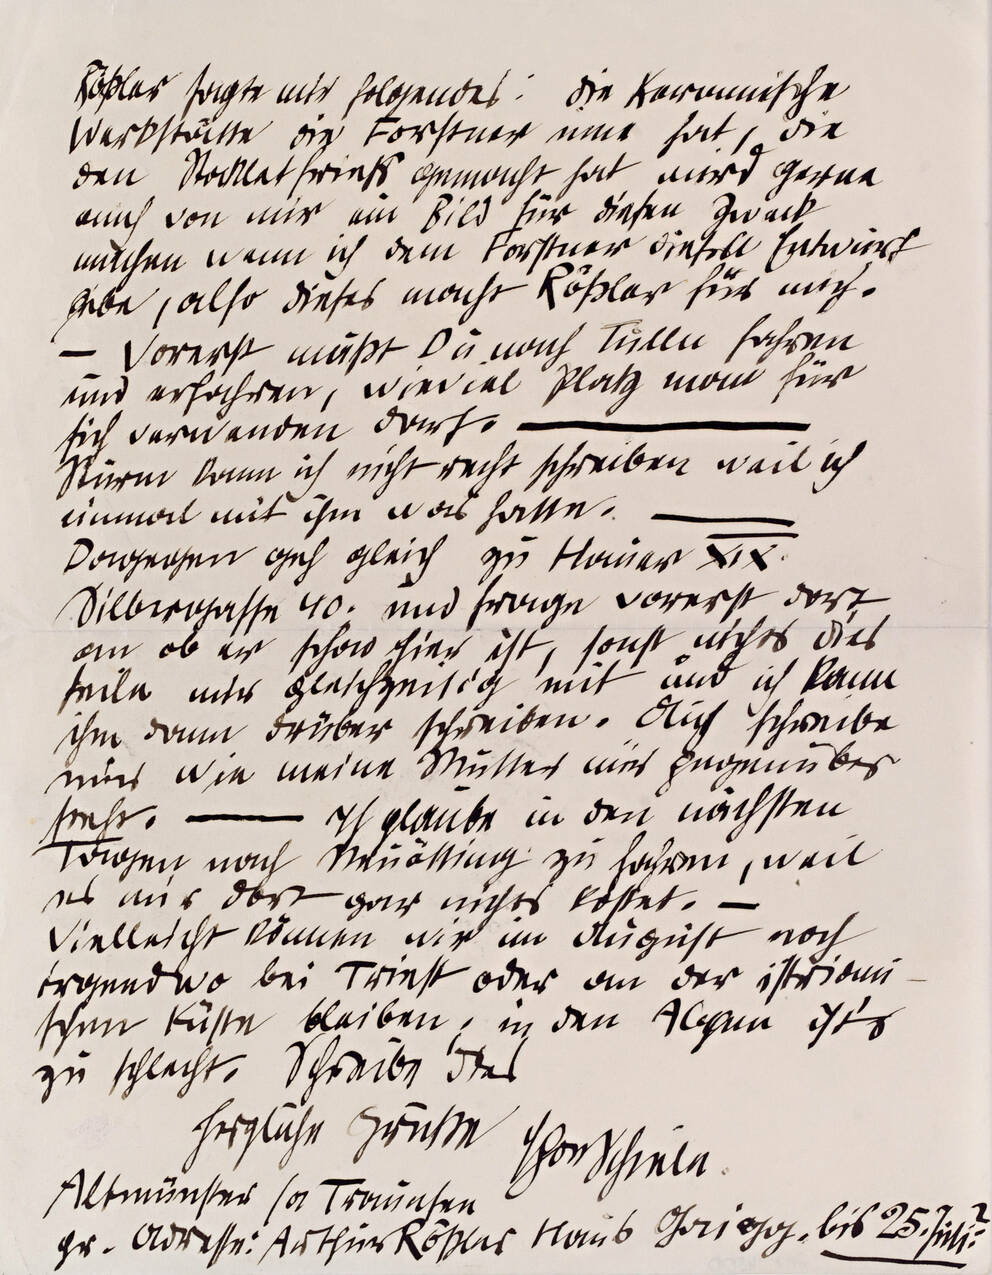 Rößler sagte mir folgendes: die Keramische
Werkstätte die Forstner inne hat, die
den Stocklet frieß gemacht hat wird gerne
auch von mir ein Bild für diesen Zweck
machen wenn ich dem Forstner diesen Entwurf
gebe, also dieses macht Rößler für mich.
— Vorerst mußt Du nach Tulln fahren
und erfahren, wieviel Platz man für
sich verwenden darf. —
Sturm kann ich nicht recht schreiben weil ich
einmal mit ihm was hatte. —
Dagegen geh gleich zu Hauer XIX.
Silbergasse 40. und frage vorerst dort
an ob er schon hier ist, sonst nichts dies
teile mir gleichzeitig mit und ich kann
ihm dann drüber schreiben. Auch schreibe
mir wie meine Mutter mir gegenüber
steht. — Ich glaube in den nächsten
Tagen nach Neuötting zu fahren, weil
es mir dort gar nichts kostet. —
Vielleicht können wir im August noch
irgendwo bei Triest oder an der istriani-
schen Küste bleiben, in den Alpen ist's
zu schlecht. Schreibe dies
herzliche Grüße Egon Schiele.
Altmünster /a Traunsee
gr. Adresse: Arthur Rößler Haus Gaigg. bis 25. Juli?